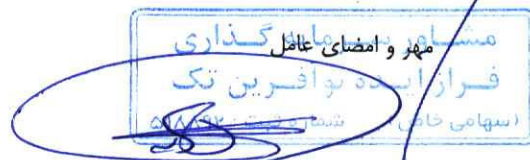 مهر و امضای عامل
مشاور سرمایه گذاری
فراز ایده نو آفرین تک
(سهامی خاص) شماره ثبت: